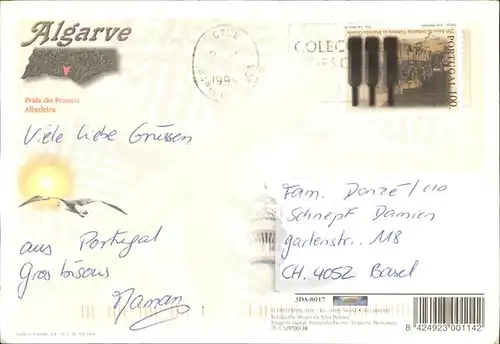 Algarve
Praia do Peneco
Albufeira
COLEC
PORTUGAL 100.
Viele liebe Grüssen
aus Portugal
Gros bisous
Maman
Fam. Donzé / c/o
Schnepf Damien
gartenstr. 118
CH. 4052 Basel
3DA-8017
8 424923 001142